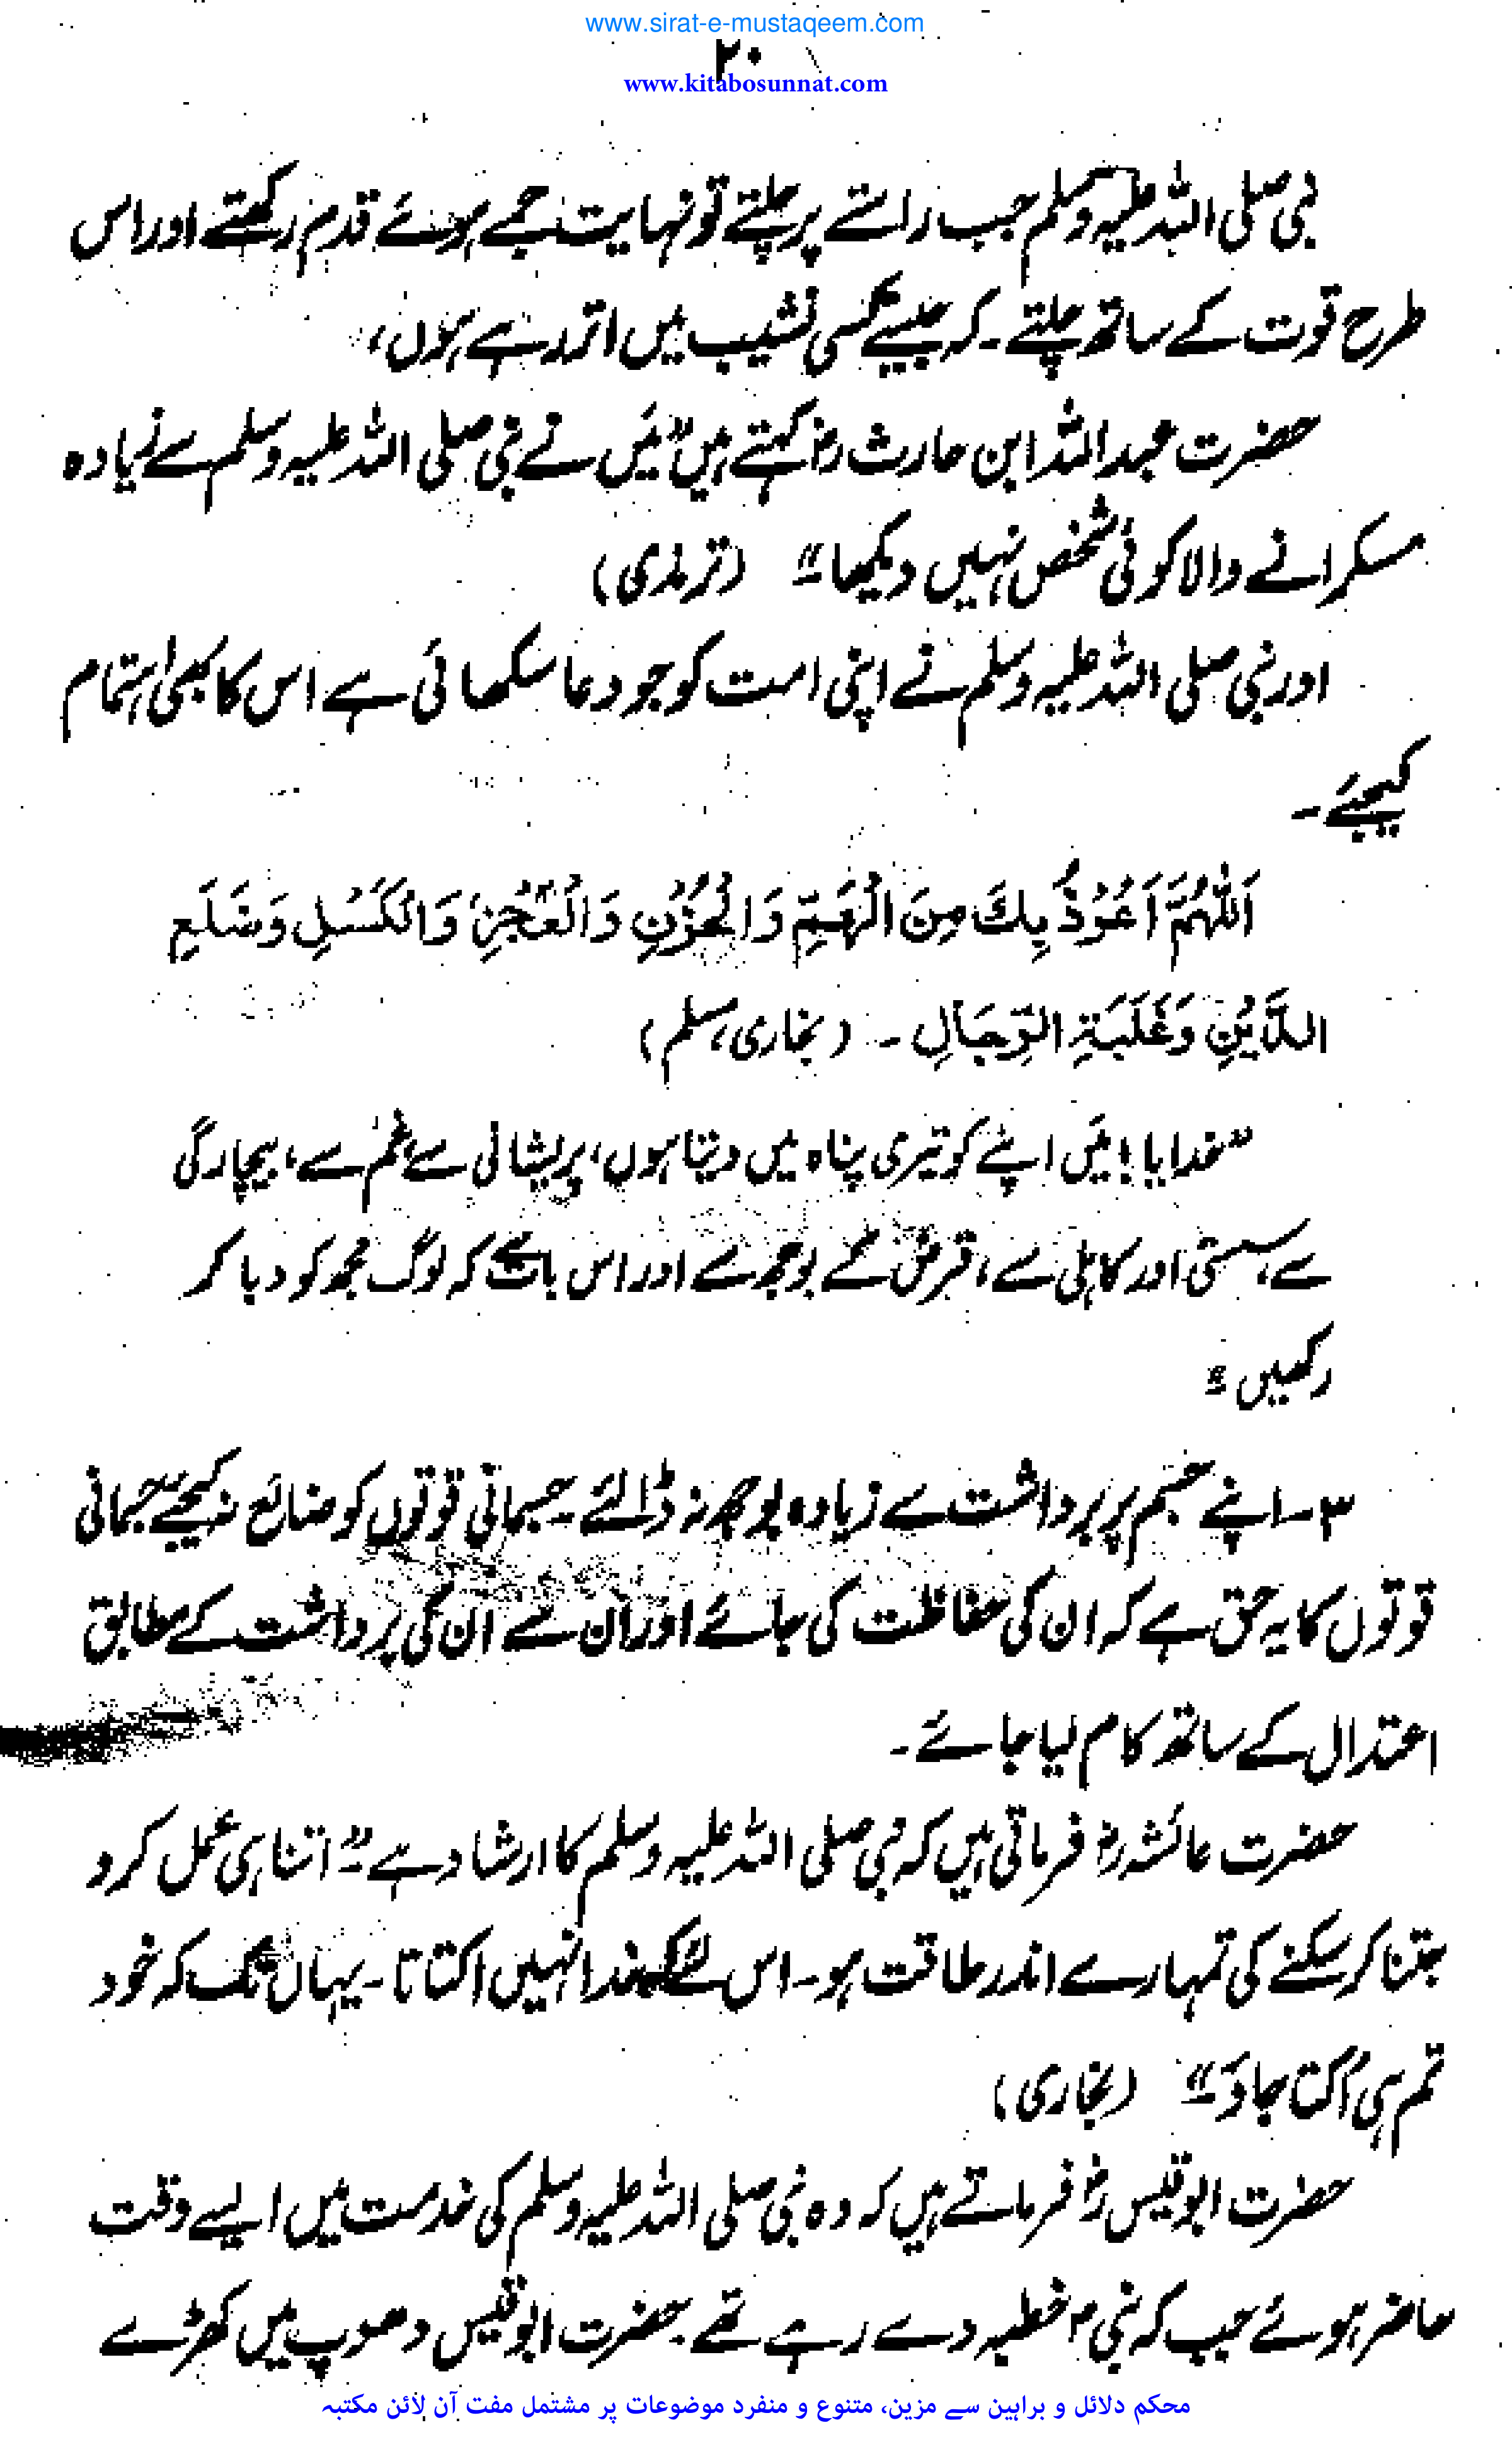 www.sirat-e-mustaqeem.com
۲۰
www.kitabosunnat.com
نبی صلی اللہ علیہ وسلم جب راستے پر چلتے تو نہایت جمے ہوئے قدم رکھتے اور اس
طرح قوت کے ساتھ چلتے۔ کہ جیسے کسی نشیب میں اتر رہے ہوں،
حضرت عبداللہ ابن حارث رضؓ کہتے ہیں "میں نے نبی صلی اللہ علیہ وسلم سے زیادہ
مسکرانے والا کوئی شخص نہیں دیکھا۔" (ترمذی)
اور نبی صلی اللہ علیہ وسلم نے اپنی امت کو جو دعا سکھائی ہے اس کا بھی اہتمام
کیجئے۔
اَللّٰهُمَّ اَعُوْذُ بِكَ مِنَ الْهَمِّ وَالْحُزْنِ وَالْعَجْزِ وَالْكَسَلِ وَضَلَعِ
الدَّيْنِ وَغَلَبَةِ الرِّجَالِ۔ (بخاری، مسلم)
"خدایا! میں اپنے کو تیری پناہ میں دیتا ہوں، پریشانی سے غم سے، بیچارگی
سے، سستی اور کاہلی سے، قرض کے بوجھ سے اور اس بات سے کہ لوگ مجھ کو دبا کر
رکھیں۔"
۳۔ اپنے جسم پر برداشت سے زیادہ بوجھ نہ ڈالئے۔ جسمانی قوتوں کو ضائع نہ کیجئے جسمانی
قوتوں کا یہ حق ہے کہ ان کی حفاظت کی جائے اور ان سے ان کی برداشت کے مطابق
اعتدال کے ساتھ کام لیا جائے۔
حضرت عائشہ رضؓ فرماتی ہیں کہ نبی صلی اللہ علیہ وسلم کا ارشاد ہے۔" اتنا ہی عمل کرو
جتنا کر سکنے کی تمہارے اندر طاقت ہو۔ اس لئے کہ خدا نہیں اکتاتا۔ یہاں تک کہ خود
تم ہی اکتا جاؤ۔" (بخاری)
حضرت ابوقیس رضؓ فرماتے ہیں کہ وہ نبی صلی اللہ علیہ وسلم کی خدمت میں ایسے وقت
حاضر ہوئے جب کہ نبیؐ خطبہ دے رہے تھے۔ حضرت ابوقیس دھوپ میں کھڑے
محکم دلائل و براہین سے مزین، متنوع و منفرد موضوعات پر مشتمل مفت آن لائن مکتبہ